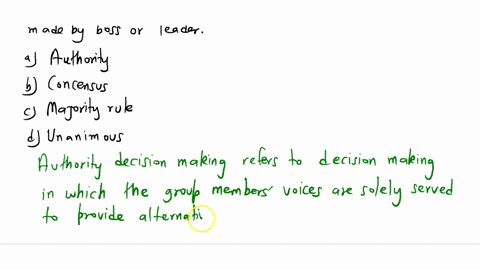 made by boss or leader.
a) Authority
b) Concensus
c) Majority rule
d) Unanimous
Authority decision making refers to decision making
in which the group members' voices are solely served
to provide alternati